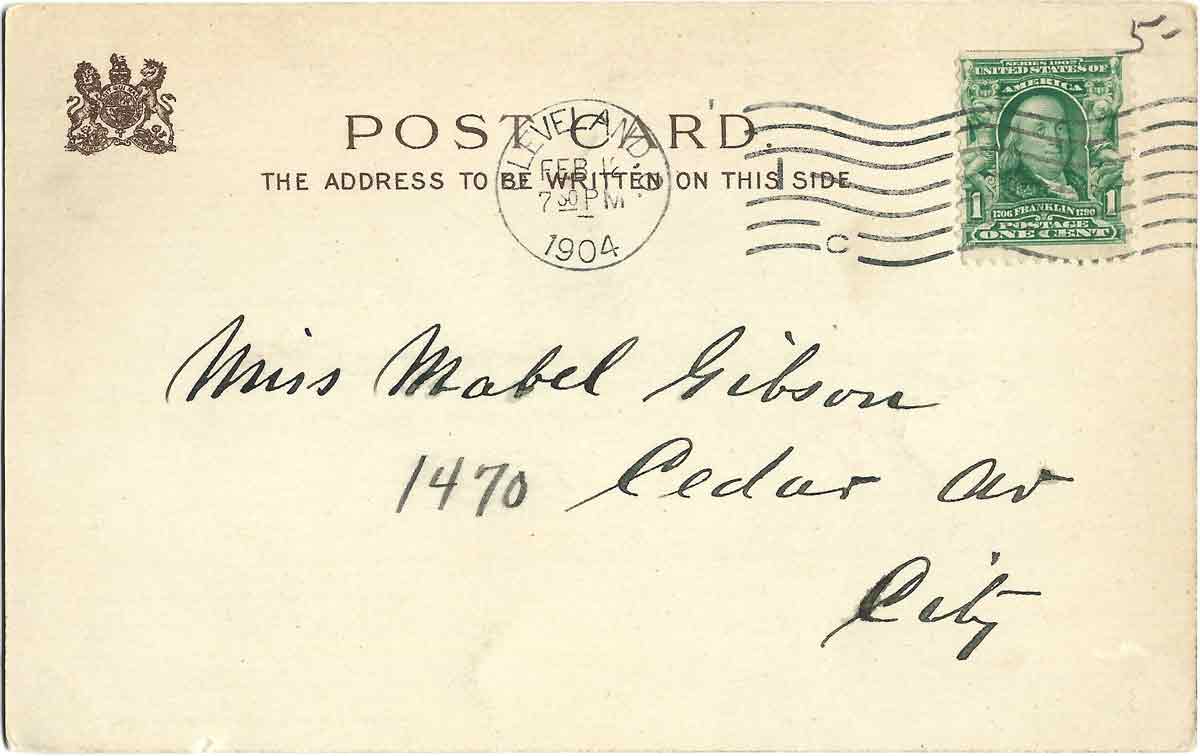 5-
SERIES 1902
UNITED STATES OF
AMERICA
POST CARD.
THE ADDRESS TO BE WRITTEN ON THIS SIDE.
CLEVELAND, O.
FEB 12
7 30 PM
1904
1
C
1 1706 FRANKLIN 1790 1
POSTAGE
ONE CENT
Miss Mabel Gibson
1470 Cedar Av
City